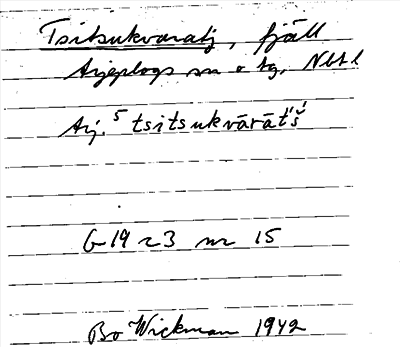 Tsitsukvaratj, fjäll
Arjeplogs sn o tg, Nbt l
Arj. 5 tsitsukvārāt́š́
G 19 r 3 nr 15
Bo Wickman 1942